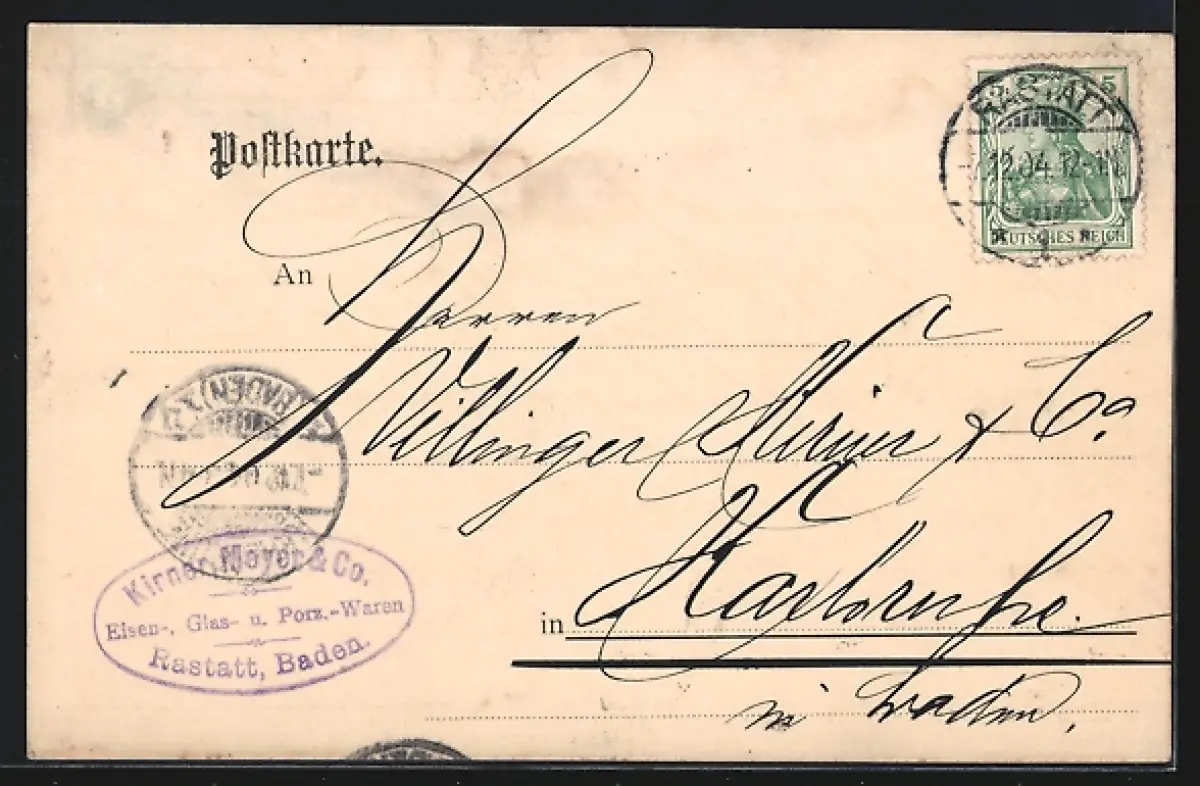 Postkarte.
5
RASTATT
12.04. 12-1N.
DEUTSCHES REICH
1
An
Herren
Villinger Kirner & Co.
(BADEN)
Kirner, Meyer & Co.
Eisen-, Glas- u. Porz.-Waren
Rastatt, Baden.
in Karlsruhe.
in Baden.